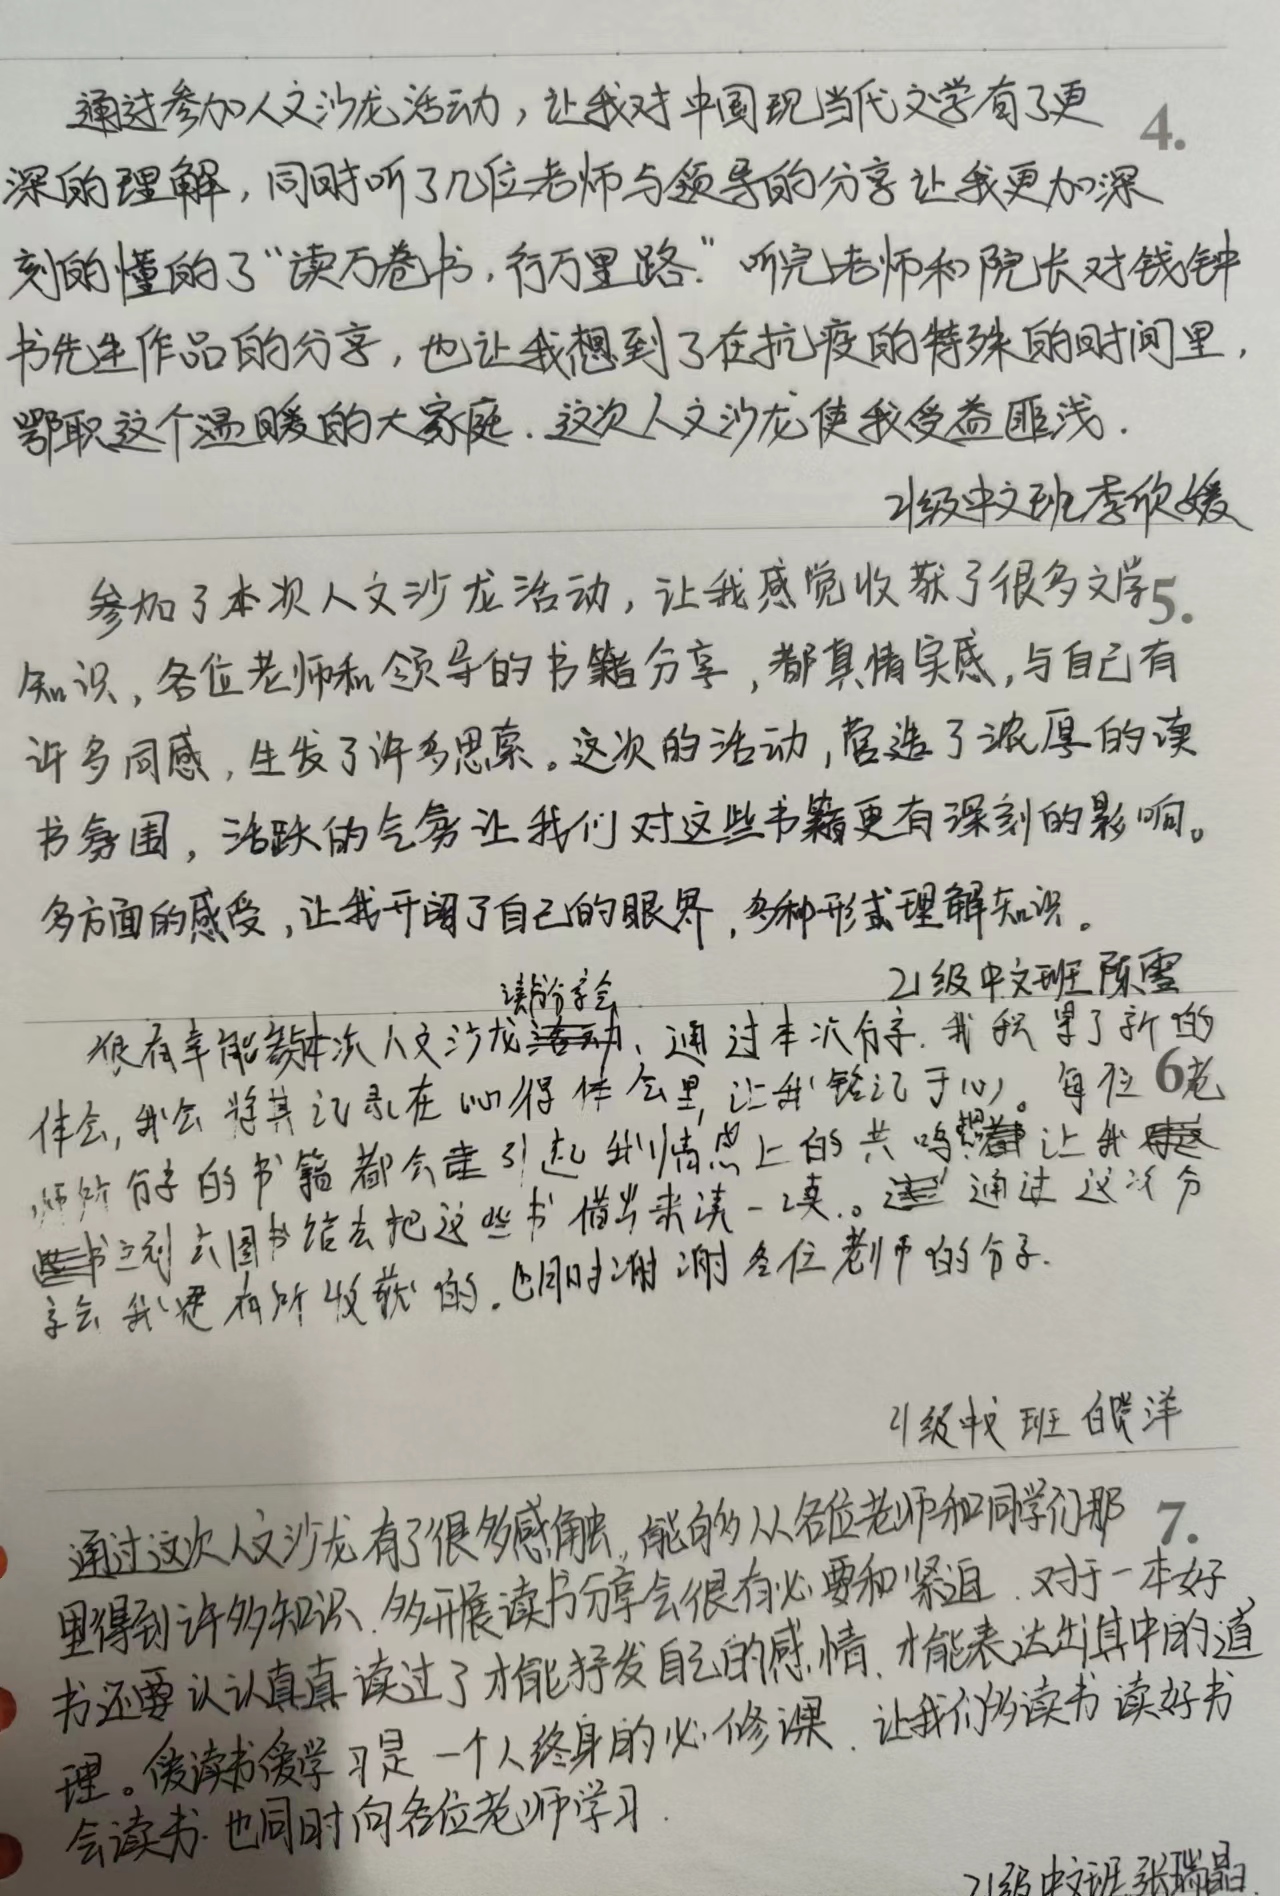 通过参加人文沙龙活动，让我对中国现当代文学有了更
4.
深的理解，同时听了几位老师与领导的分享让我更加深
刻的懂的了“读万卷书，行万里路.”听完老师和院长对钱钟
书先生作品的分享，也让我想到了在抗疫的特殊的时间里，
鄂职这个温暖的大家庭.这次人文沙龙使我受益匪浅.
21级中文班李欣媛
参加了本次人文沙龙活动，让我感觉收获了很多文学
5.
知识，各位老师和领导的书籍分享，都真情实感，与自己有
许多同感，生发了许多思索。这次的活动，营造了浓厚的读
书氛围，活跃的气氛让我们对这些书籍更有深刻的影响。
多方面的感受，让我开阔了自己的眼界，多种形式理解知识。
21级中文班陈雪
读书分享会
很有幸能参加本次人文沙龙活动、通过本次分享.我积累了新的
体会，我会将其记录在心得体会里，让我铭记于心。每位老
6
师所分享的书籍都会引起我情感上的共鸣 让我
书立刻去图书馆去把这些书借出来读一读.。通过这次分
享会我是有所收获的.也同时谢谢各位老师的分享.
21级中文班 白 洋
通过这次人文沙龙有了很多感触，能的多从各位老师和同学们那
7.
里得到许多知识、多开展读书分享会很有必要和紧迫.对于一本好
书还要认认真真读过了才能抒发自己的感情、才能表达出其中的道
理。爱读书爱学习是一个人终身的必修课.让我们多读书读好书
会读书.也同时向各位老师学习.
21级中文班张瑞晶